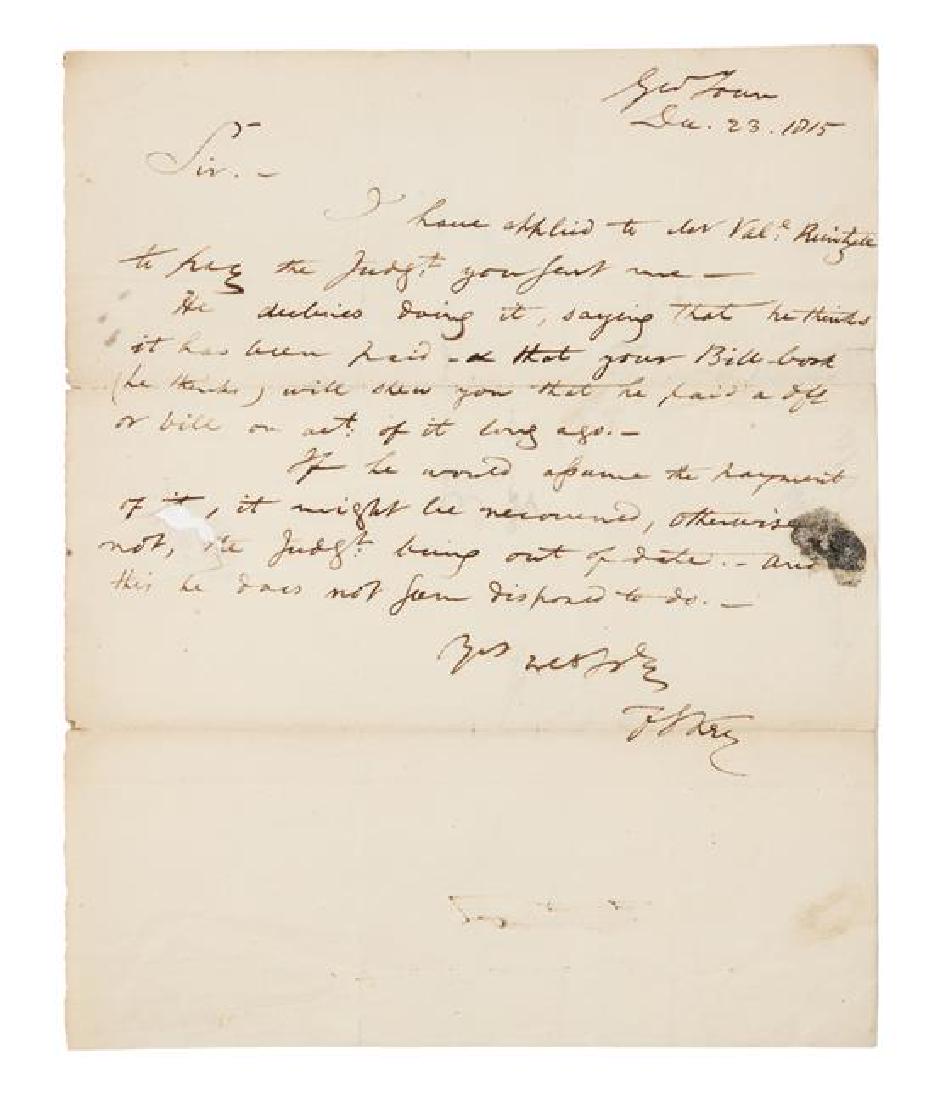 Geo Town
Dec. 23. 1815
Sir. -
I have applied to Mr Val.e Reintzele
to pay the Judg.t you sent me -
He declines doing it, saying that he thinks
it has been paid - & that your Bill-book
(he thinks) will shew you that he paid a dft
or bill on act. of it long ago. -
If he would assume the payment
of it, it might be recovered, otherwise
not, the Judg.t being out of date. - and
this he does not seem disposed to do. -
Yrs
F S Key